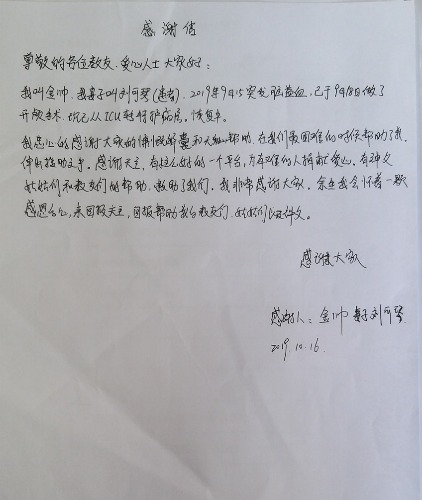 感谢信
尊敬的各位教友、爱心人士 大家好：
我叫金帅，我妻子叫刘可琴(患者)，2019年9月15突发脑溢血，已于9月18做了
开颅手术，现已从ICU转特护病房，恢复中。
我忠心的感谢大家的慷慨解囊和大力帮助，在我们最困难的时候帮助了我，
伸出援助之手。感谢天主，有这么好的一个平台，为有难的人捐献爱心，有神父
姊妹们和教友们的帮助，救助了我们。我非常感谢大家。余生我会怀着一颗
感恩的心，来回报天主，回报帮助我的教友们，姊妹们以及神父。
感谢大家
感谢人：金帅 妻子刘可琴
2019.10.16